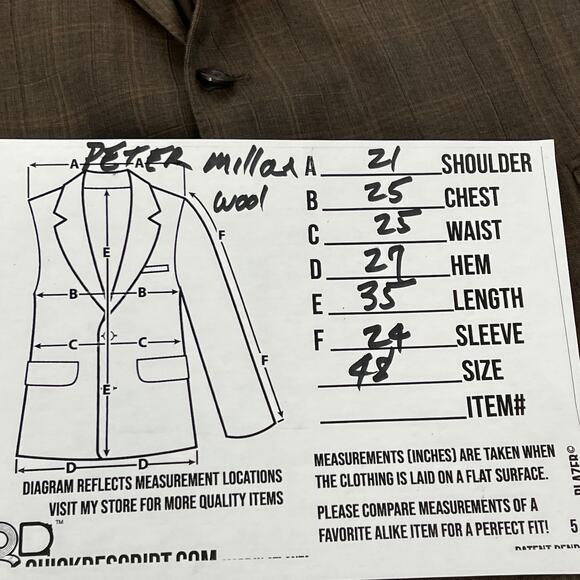 PETER Millar
wool
A 21 SHOULDER
B 25 CHEST
C 25 WAIST
D 27 HEM
E 35 LENGTH
F 24 SLEEVE
48 SIZE
ITEM#
A A
E
F
B B
C C
E
F
D D
DIAGRAM REFLECTS MEASUREMENT LOCATIONS
VISIT MY STORE FOR MORE QUALITY ITEMS
MEASUREMENTS (INCHES) ARE TAKEN WHEN
THE CLOTHING IS LAID ON A FLAT SURFACE.
PLEASE COMPARE MEASUREMENTS OF A
FAVORITE ALIKE ITEM FOR A PERFECT FIT!
BLAZER©
5
QD™
QUICKDESCRIPT.COM
PATENT PEND